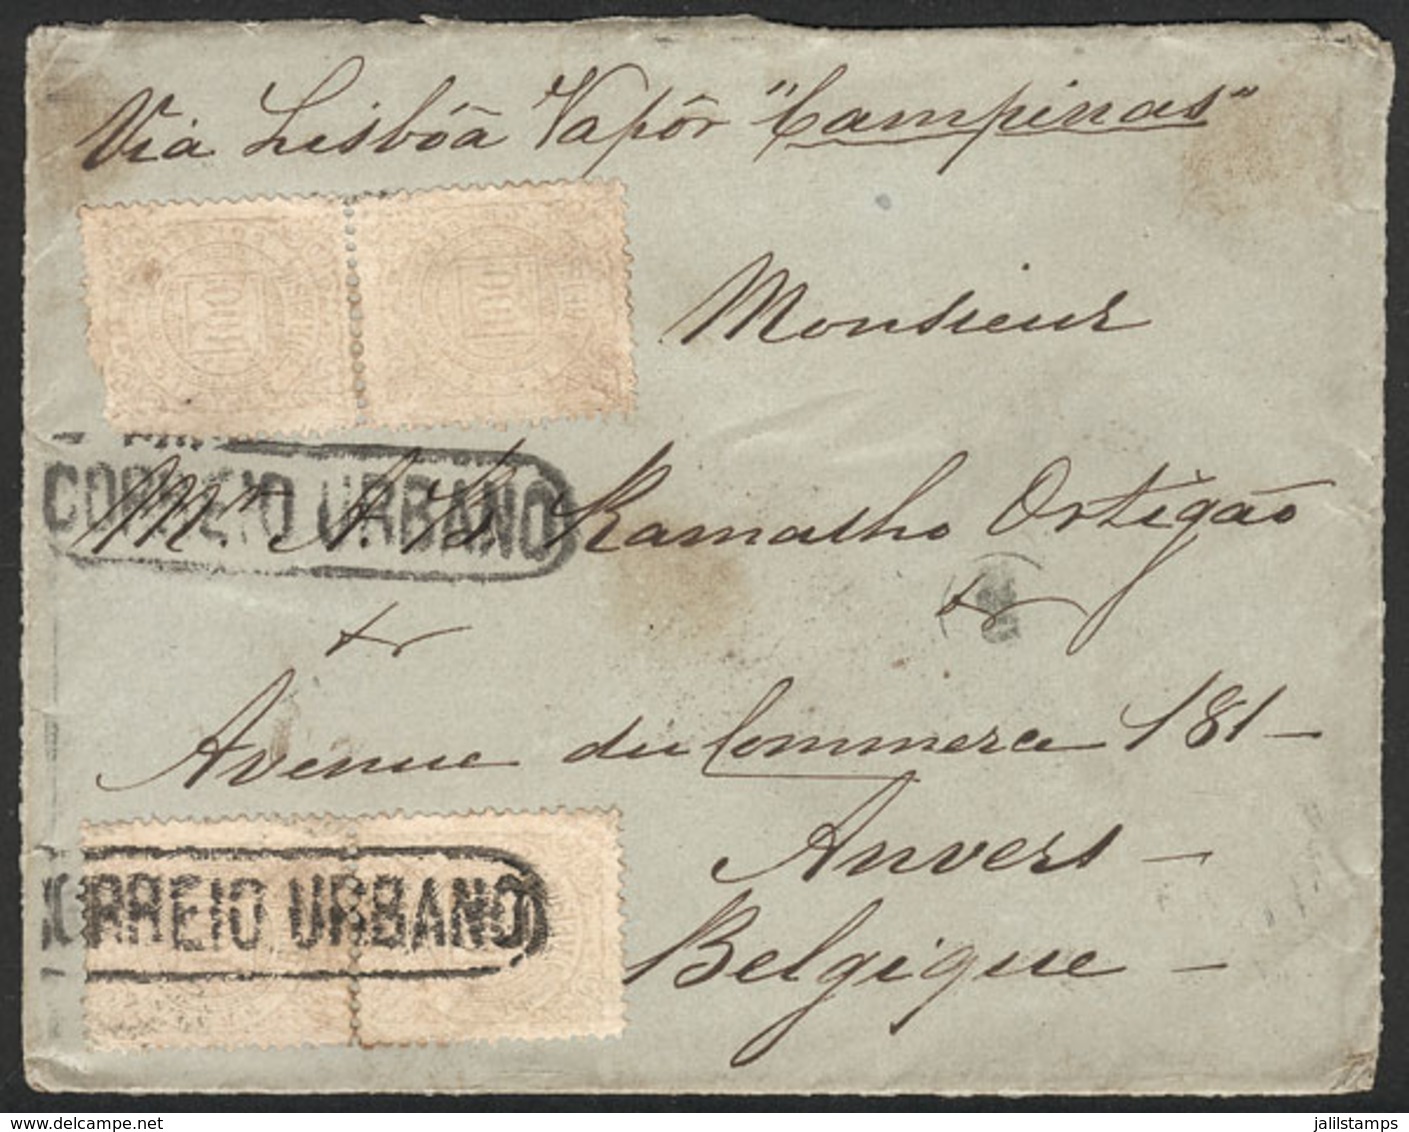 Via Lisbôa Vapôr "Campinas"
100 100
Monsieur
CORREIO URBANO
Mr. A. B. Ramalho Ortigão
Avenue du Commerce 181-
CORREIO URBANO
Anvers -
Belgique -
jalilstamps